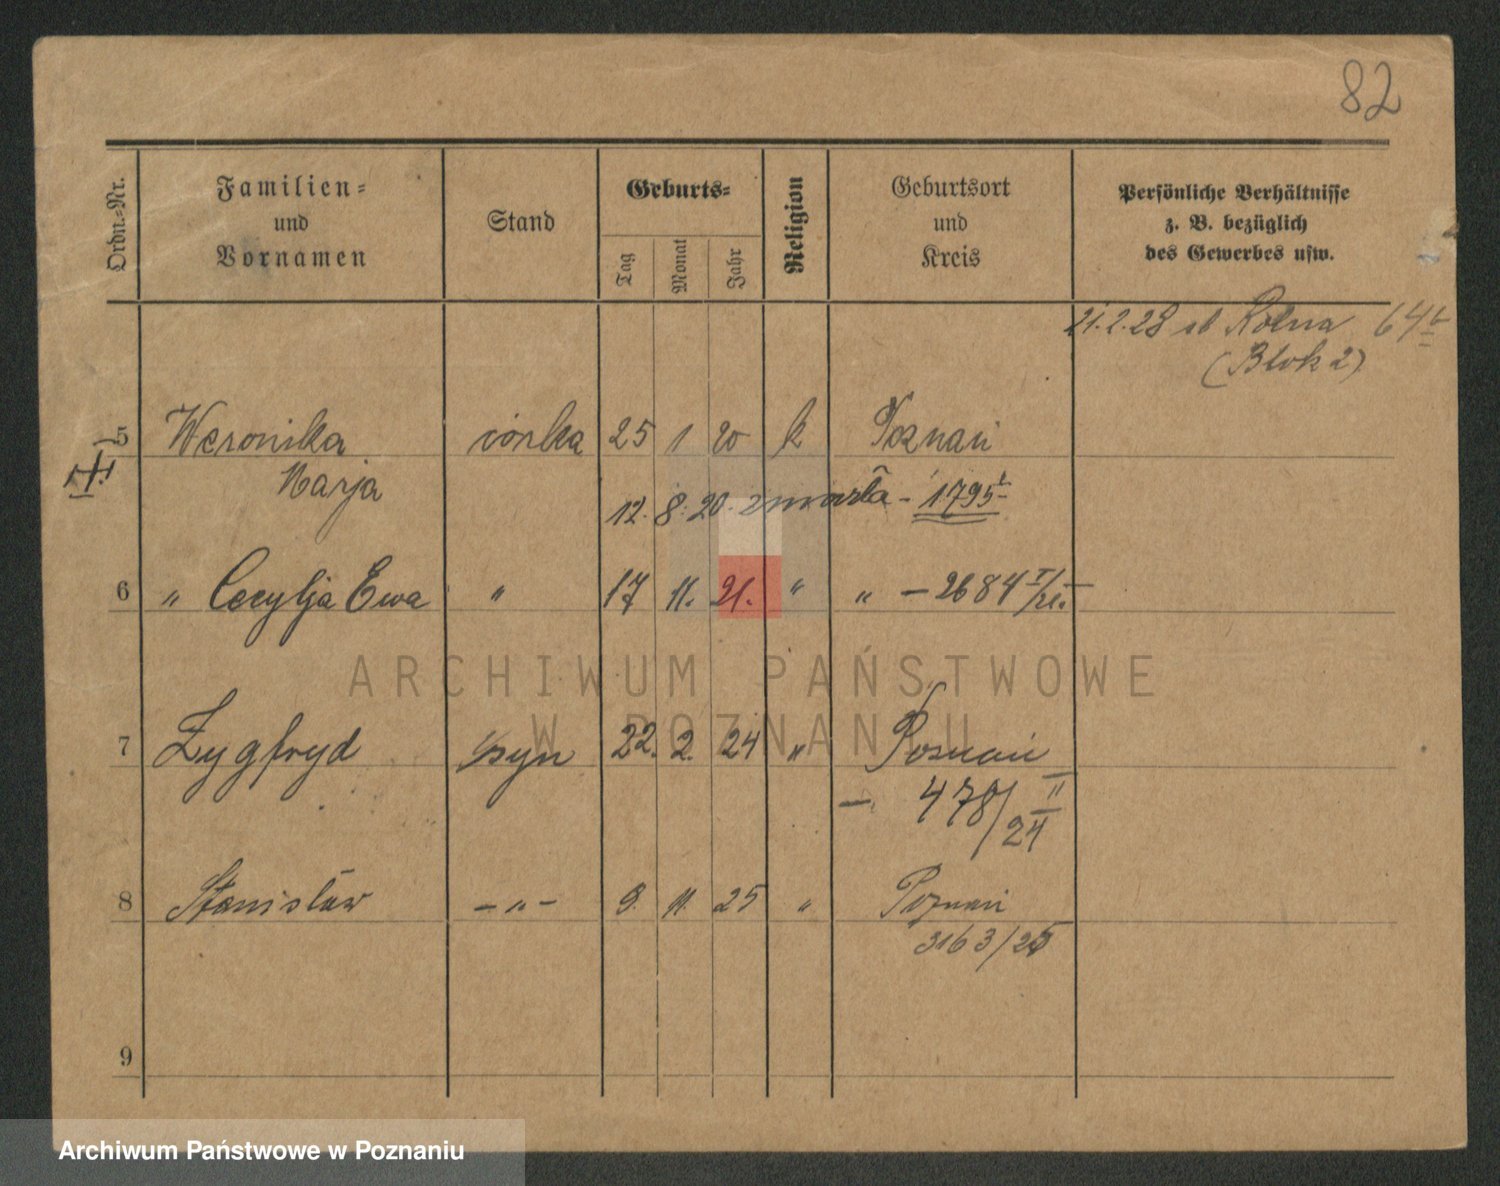 82
Ordn.-Nr.
Familien-
und
Vornamen
Stand
Geburts-
Tag
Monat
Jahr
Religion
Geburtsort
und
Kreis
Persönliche Verhältnisse
z. B. bezüglich
des Gewerbes usw.
21.2.28 Rolna 64
(Blok 2)
5 Weronika córka 25 1 20 k Poznań
Marja
12. 8. 20. zmarła - 1795
6 " Cecylja Ewa " 17 11. 21. " " - 2684
ARCHIWUM PAŃSTWOWE
W POZNANIU
7 Zygfryd syn 22. 2. 24 " Poznań
- 478/24 II
8 Stanisław -"- 9. 11. 25 " Poznań
3163/25
9
Archiwum Państwowe w Poznaniu